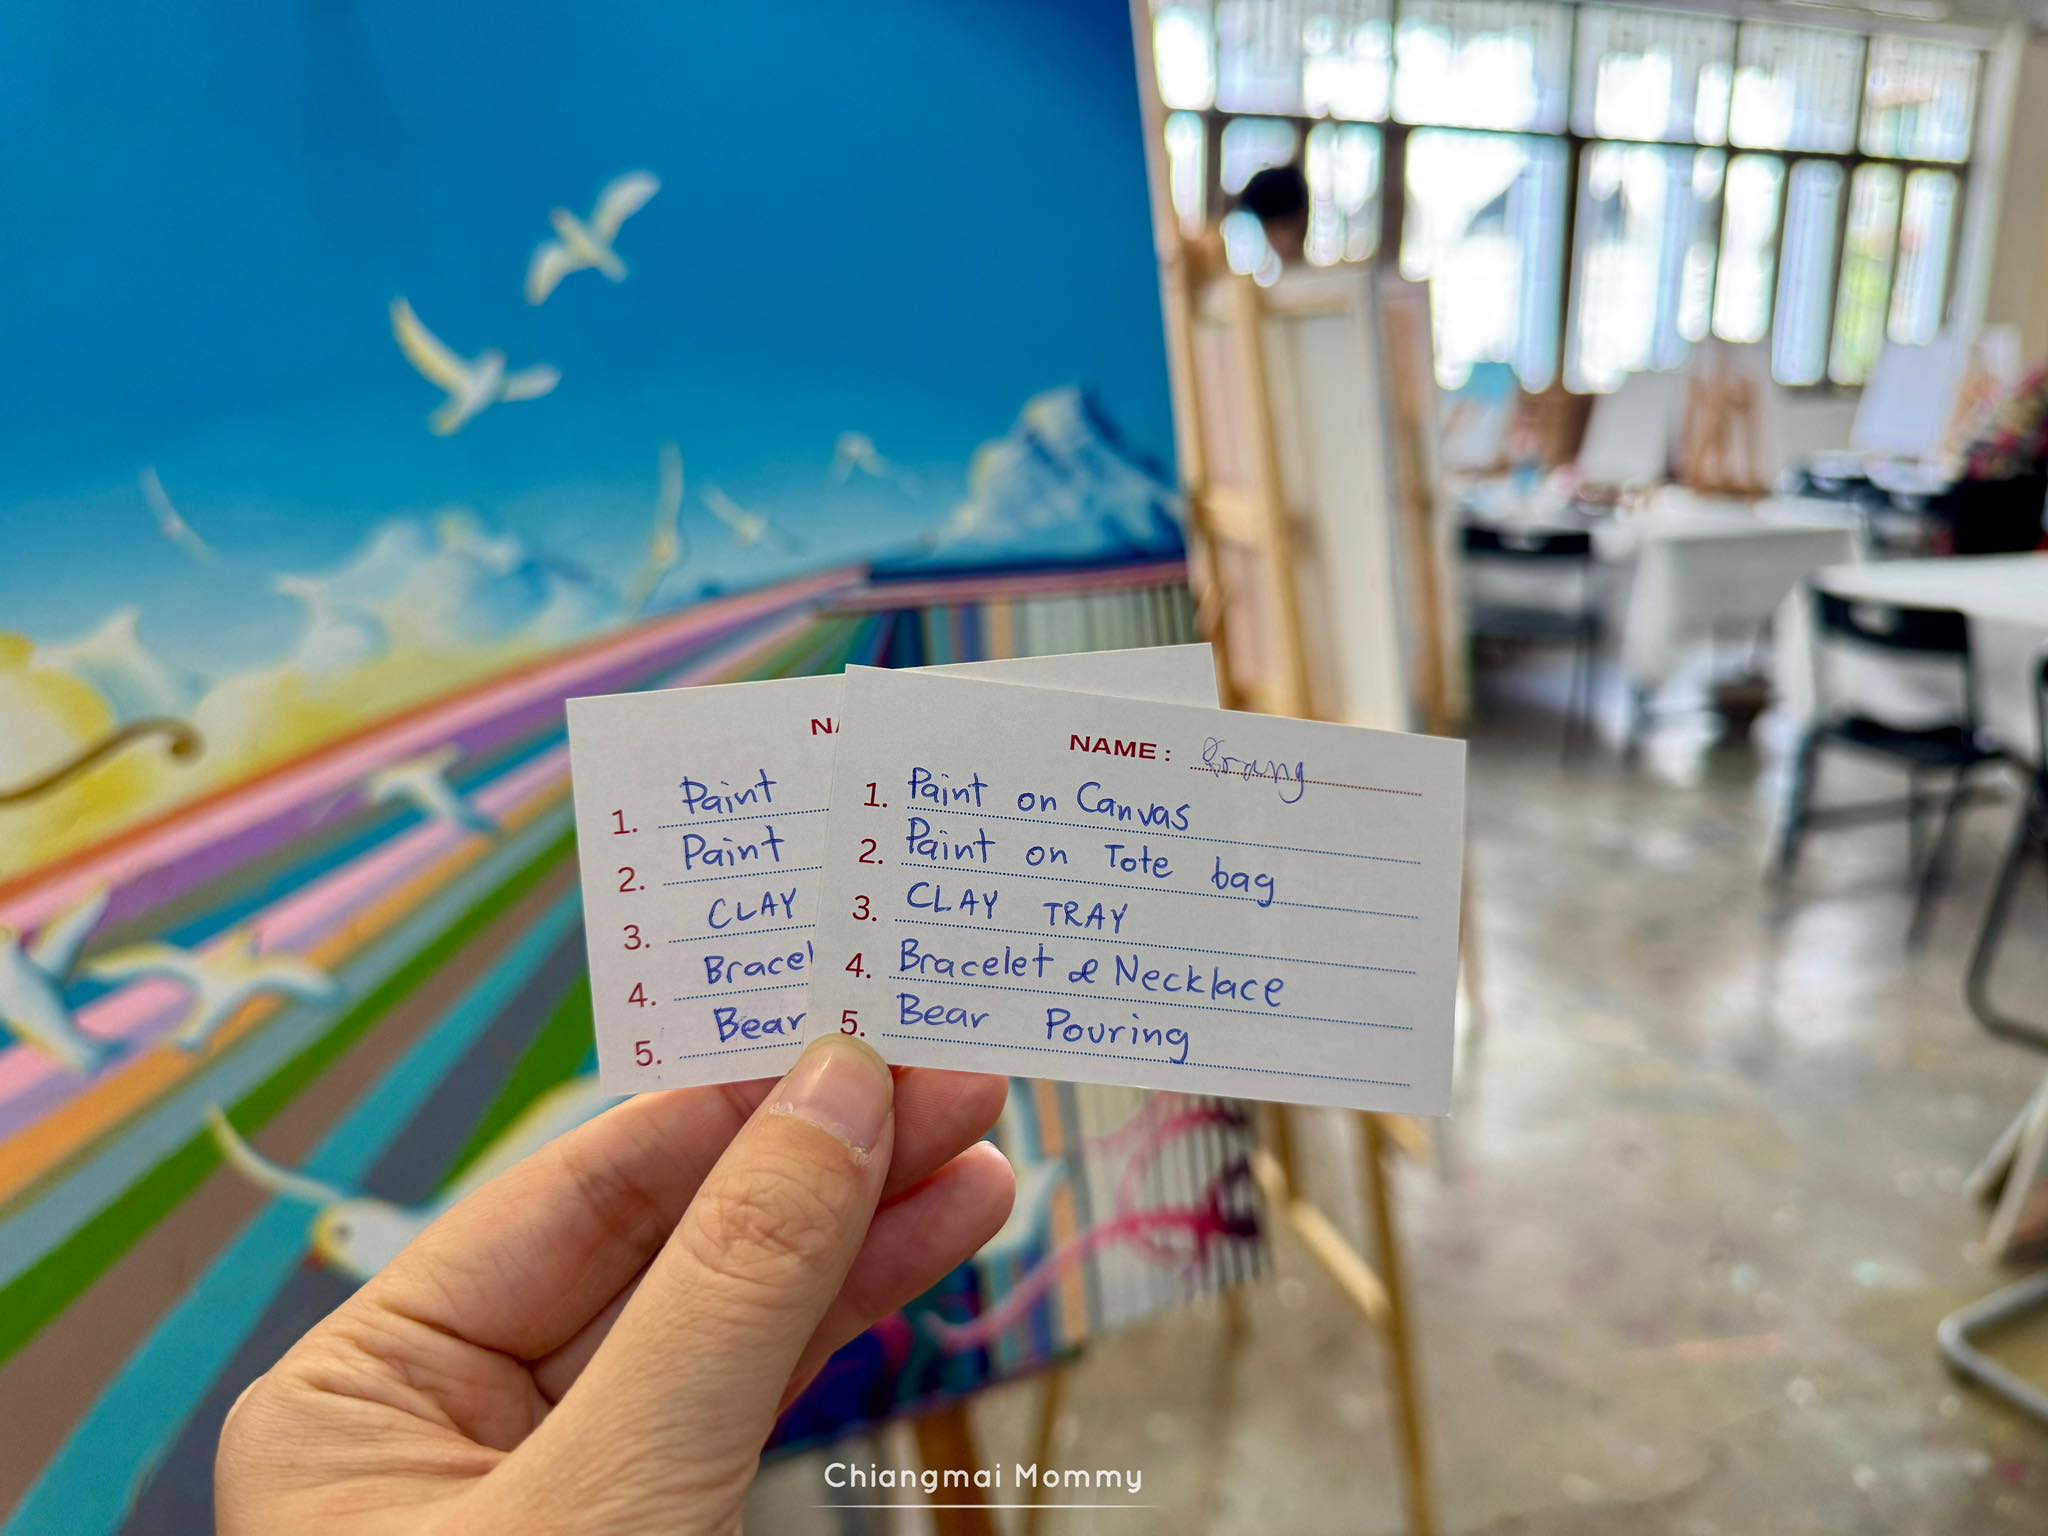 NAME:
1. Paint
2. Paint
3. CLAY
4. Bracel
5. Bear
NAME: Grang
1. Paint on Canvas
2. Paint on Tote bag
3. CLAY TRAY
4. Bracelet & Necklace
5. Bear Pouring
Chiangmai Mommy